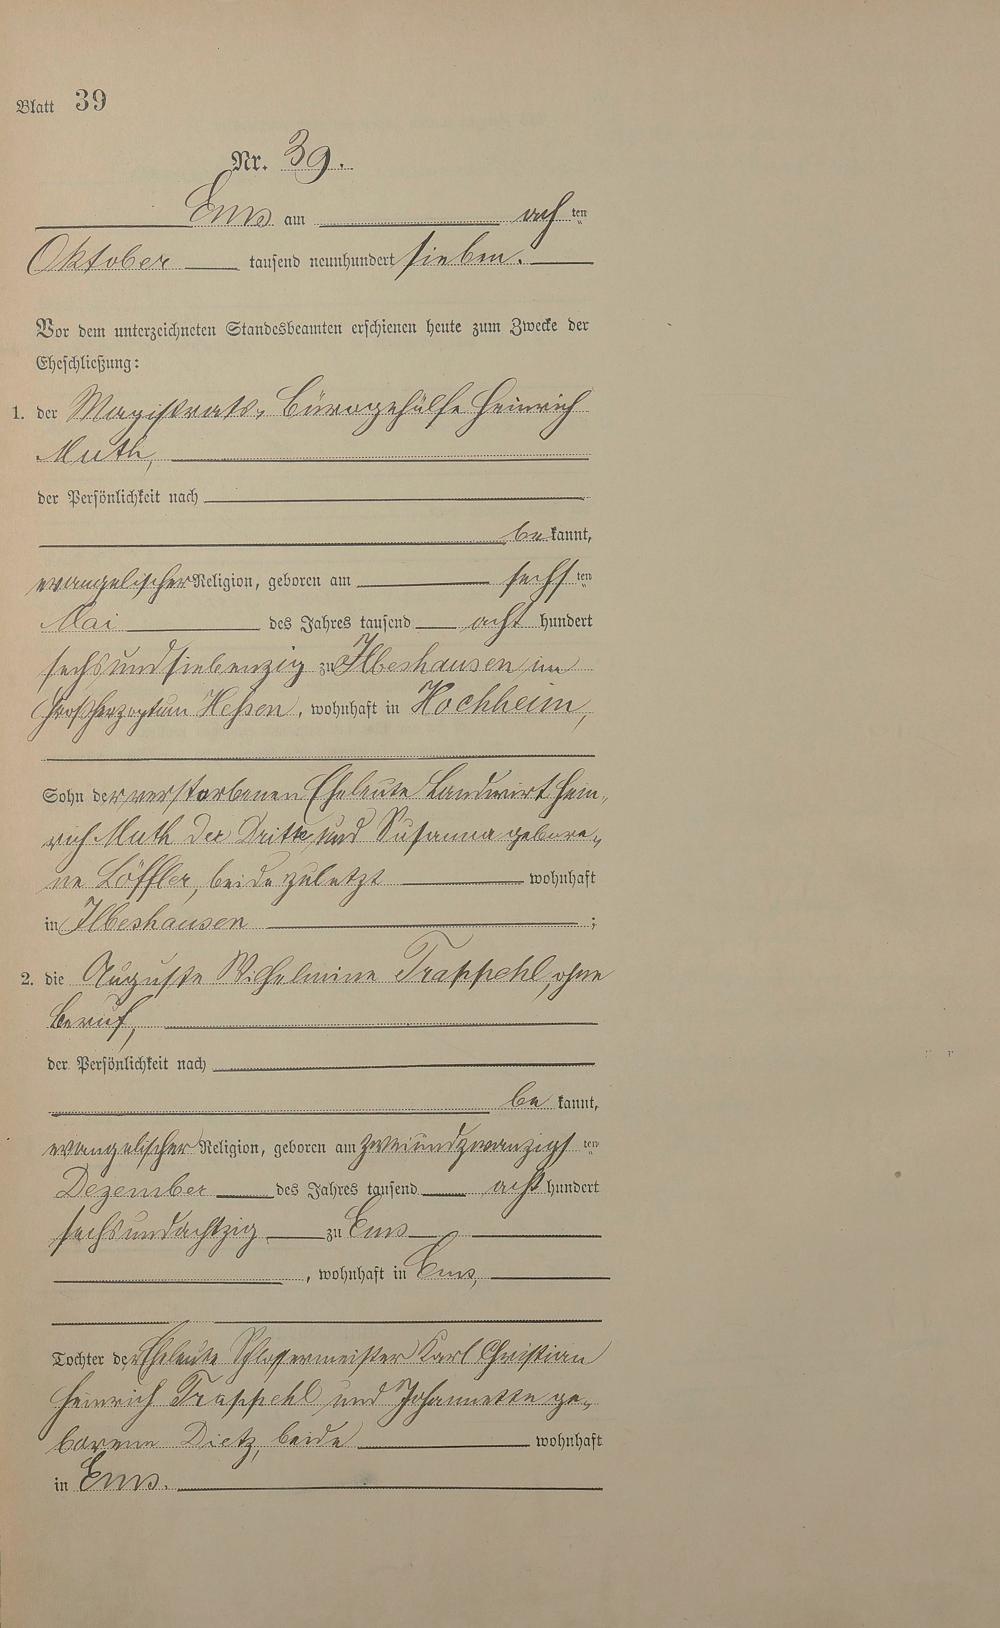 Blatt 39
Nr. 39.
Ems am achten
Oktober tausend neunhundert sieben.
Vor dem unterzeichneten Standesbeamten erschienen heute zum Zwecke der
Eheschließung:
1. der Magistrats-Bürogehülfe Heinrich
Muth,
der Persönlichkeit nach
bekannt,
evangelischer Religion, geboren am sechsten
Mai des Jahres tausend acht hundert
sechsundsiebenzig zu Ilbeshausen im
Großherzogtum Hessen, wohnhaft in Hochheim,
Sohn der verstorbenen Eheleute Landwirt Hein-
rich Muth der Dritte, und Susanna gebore-
ne Löffler, beide zuletzt wohnhaft
in Ilbeshausen ;
2. die Auguste Wilhelmine Trappehl, ohne
Beruf,
der Persönlichkeit nach
bekannt,
evangelischer Religion, geboren am zweiundzwanzigsten
Dezember des Jahres tausend acht hundert
sechsundachtzig zu Ems
, wohnhaft in Ems,
Tochter der Eheleute Schlossermeister Karl Christian
Heinrich Trappehl und Johannette ge-
borene Dietz, beide wohnhaft
in Ems.